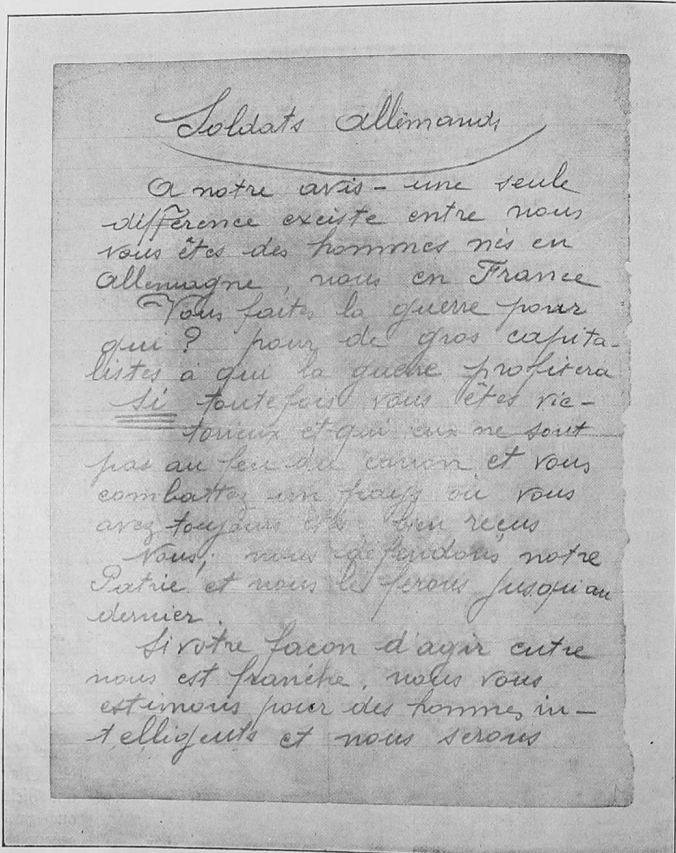 Soldats Allemands
A notre avis - une seule
différence existe entre nous
vous êtes des hommes nés en
Allemagne, nous en France
Vous faites la guerre pour
qui ? pour de gros capita-
listes à qui la guerre profitera
Si toutefois vous êtes vic-
torieux et qui eux ne sont
pas au feu du canon et vous
combattez un pays où vous
avez toujours été bien reçus
Nous, nous défendons notre
Patrie et nous le ferons jusqu'au
dernier.
Si votre façon d'agir entre
nous est franche, nous vous
estimons pour des hommes in-
telligents et nous serons